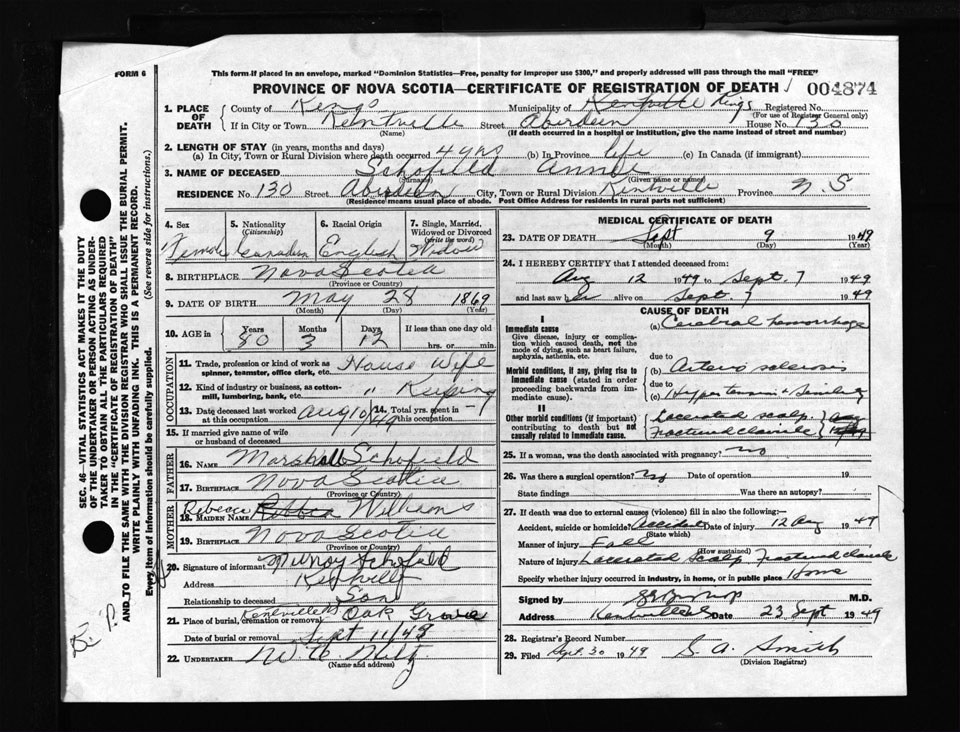 FORM 6
This form if placed in an envelope, marked "Dominion Statistics—Free, penalty for improper use $300," and properly addressed will pass through the mail "FREE"
PROVINCE OF NOVA SCOTIA—CERTIFICATE OF REGISTRATION OF DEATH 004874
1. PLACE OF DEATH County of Kings Municipality of Kentville Kings Registered No.
(For use of Registrar General only)
If in City or Town Kentville Street Aberdeen House No. 130
(Name) (If death occurred in a hospital or institution, give the name instead of street and number)
2. LENGTH OF STAY (in years, months and days)
(a) In City, Town or Rural Division where death occurred 4 yrs (b) In Province life (c) In Canada (if immigrant)
3. NAME OF DECEASED Schofield Annie
(Surname) (Given name or names)
RESIDENCE No. 130 Street Aberdeen City, Town or Rural Division Kentville Province N.S
(Residence means usual place of abode. Post Office Address for residents in rural parts not sufficient)
4. Sex Female
5. Nationality (Citizenship) Canadian
6. Racial Origin English
7. Single, Married, Widowed or Divorced (write the word) Widow
8. BIRTHPLACE Nova Scotia
(Province or Country)
9. DATE OF BIRTH May 28 1869
(Month) (Day) (Year)
10. AGE in Years 80 Months 3 Days 12 If less than one day old
hrs. or min.
OCCUPATION
11. Trade, profession or kind of work as spinner, teamster, office clerk, etc. House Wife
12. Kind of industry or business, as cotton-mill, lumbering, bank, etc. " Keeping
13. Date deceased last worked at this occupation Aug 10/49 14. Total yrs. spent in this occupation
15. If married give name of wife or husband of deceased
FATHER
16. NAME Marshall Schofield
17. BIRTHPLACE Nova Scotia
(Province or Country)
MOTHER
18. MAIDEN NAME Rebecca Williams
19. BIRTHPLACE Nova Scotia
(Province or Country)
20. Signature of informant Murray Schofield
Address Kentville
Relationship to deceased Son
21. Place of burial, cremation or removal Kentville Oak Grove
Date of burial or removal Sept 11/49
22. UNDERTAKER
(Name and address)
MEDICAL CERTIFICATE OF DEATH
23. DATE OF DEATH Sept 9 1949
(Month) (Day) (Year)
24. I HEREBY CERTIFY that I attended deceased from:
Aug 12 1949 to Sept. 7 1949
and last saw her alive on Sept. 7 1949
CAUSE OF DEATH
I
Immediate cause
Give disease, injury or complication which caused death, not the mode of dying, such as heart failure, asphyxia, asthenia, etc.
(a) Cerebral hemorrhage
due to
Morbid conditions, if any, giving rise to immediate cause (stated in order proceeding backwards from immediate).
(b) Arterio sclerosis
due to
(c) Hypertension & Senility
II
Other morbid conditions (if important) contributing to death but not causally related to immediate cause.
Lacerated scalp
Fractured clavicle
25. If a woman, was the death associated with pregnancy? no
26. Was there a surgical operation? no Date of operation 19
State findings Was there an autopsy?
27. If death was due to external causes (violence) fill in also the following:—
Accident, suicide or homicide? Accident Date of injury 12 Aug 1949
(State which)
Manner of injury Fall
(How sustained)
Nature of injury Lacerated Scalp Fractured clavicle
Specify whether injury occurred in industry, in home, or in public place Home
Signed by M.D.
Address Kentville Date 23 Sept 1949
28. Registrar's Record Number
29. Filed Sept. 30 1949 S. A. Smith
(Division Registrar)
SEC. 46—VITAL STATISTICS ACT MAKES IT THE DUTY OF THE UNDERTAKER OR PERSON ACTING AS UNDERTAKER TO OBTAIN ALL THE PARTICULARS REQUIRED IN THE "CERTIFICATE OF REGISTRATION OF DEATH" AND TO FILE THE SAME WITH THE DIVISION REGISTRAR WHO SHALL ISSUE THE BURIAL PERMIT.
WRITE PLAINLY WITH UNFADING INK. THIS IS A PERMANENT RECORD.
Every item of information should be carefully supplied. (See reverse side for instructions.)